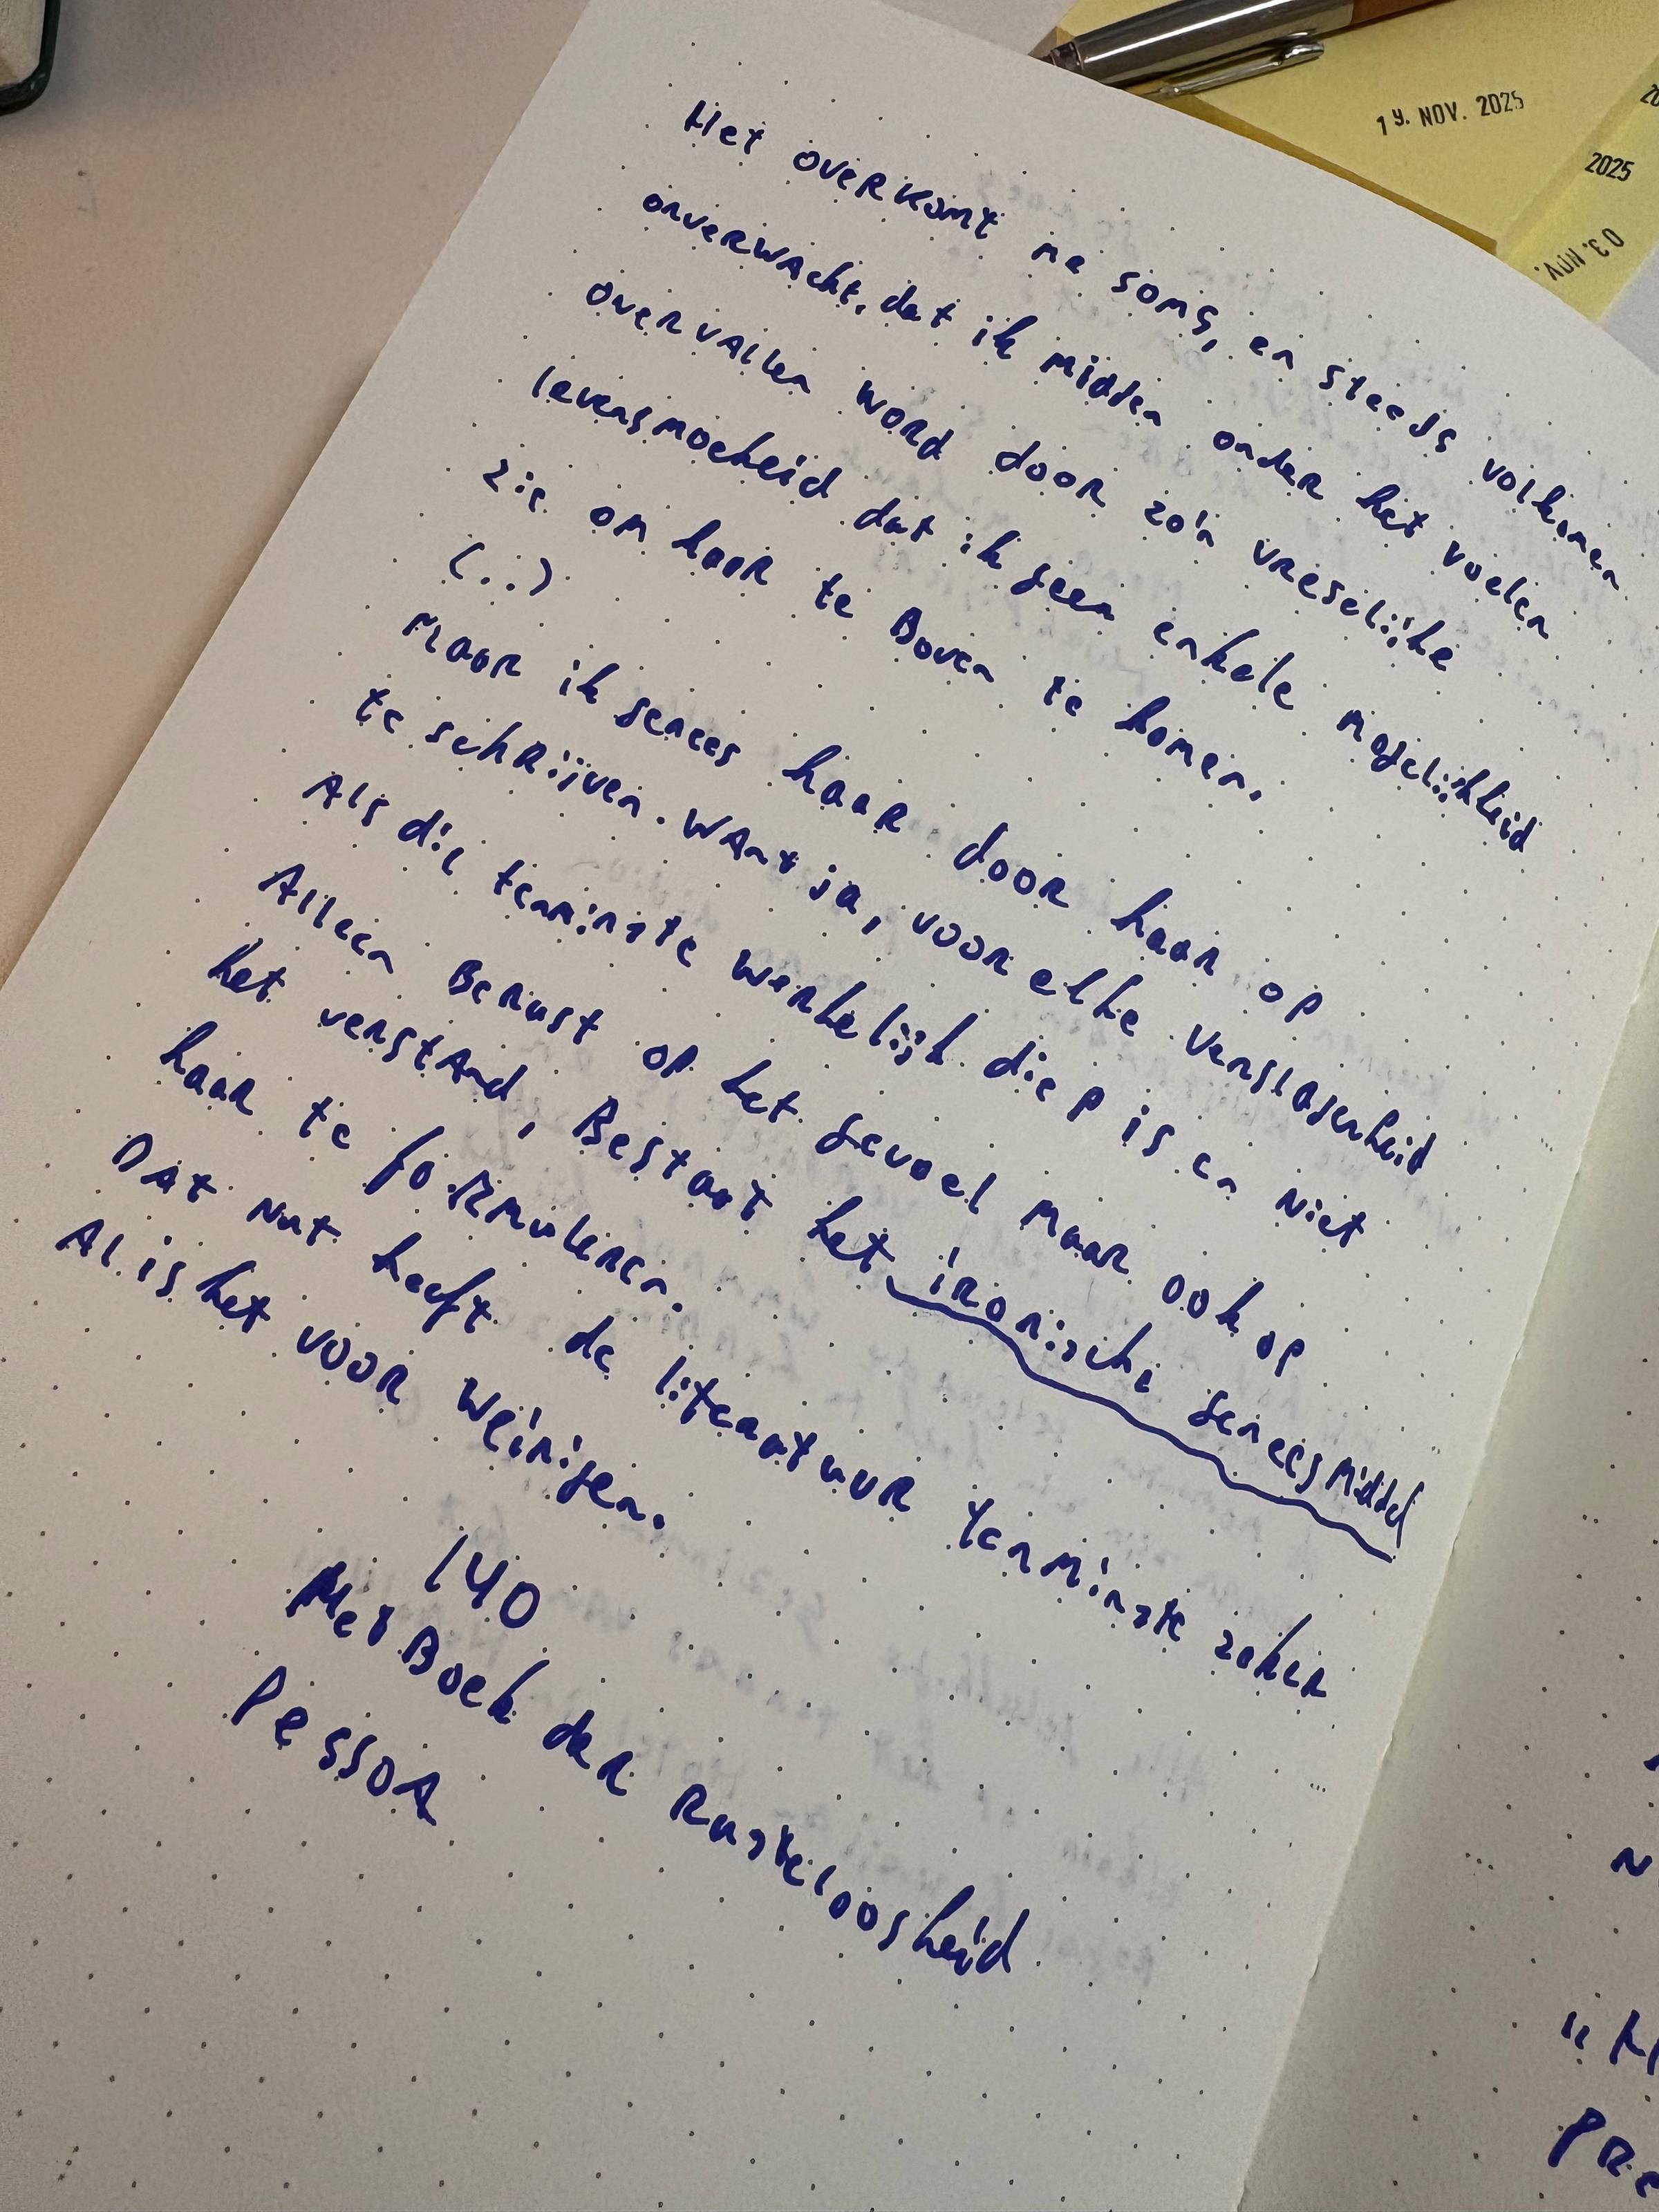 Het overkomt me soms, en steeds volkomen
onverwacht, dat ik midden onder het voelen
overvallen word door zo'n vreselijke
levensmoeheid dat ik geen enkele mogelijkheid
zie om haar te Boven te komen.
(...)
Maar ik genees haar door haar op
te schrijven. Want ja, voor elke verslagenheid
Als die tenminste werkelijk diep is en niet
Alleen Berust op het gevoel maar ook op
het verstand, Bestaat het ironische geneesmiddel
haar te formuleren.
Dat nut heeft de literatuur tenminste zeker
Al is het voor weinigen.
140
Het Boek der Rusteloosheid
Pessoa
19. NOV. 2025
2025
03. NOV.
"H
PRe